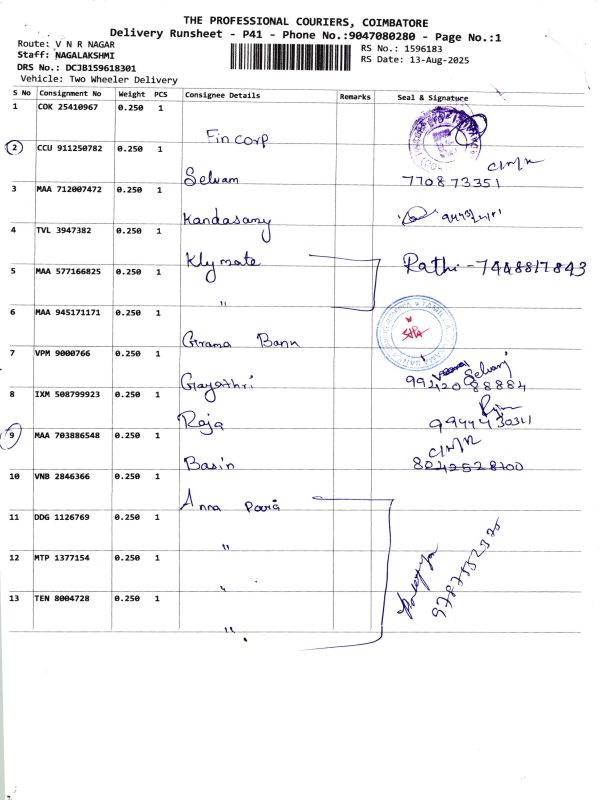 THE PROFESSIONAL COURIERS, COIMBATORE
Delivery Runsheet - P41 - Phone No.:9047080280 - Page No.:1
Route: V N R NAGAR
Staff: NAGALAKSHMI
DRS No.: DCJB159618301
Vehicle: Two Wheeler Delivery
RS No.: 1596183
RS Date: 13-Aug-2025
S No Consignment No Weight PCS Consignee Details Remarks Seal & Signature
1 COK 25410967 0.250 1 Fin corp
2 CCU 911250782 0.250 1 Selvam 770873351
3 MAA 712007472 0.250 1 Kandasamy
4 TVL 3947382 0.250 1 Klymate Rathi - 7448817843
5 MAA 577166825 0.250 1 "
6 MAA 945171171 0.250 1 Grama Bann
7 VPM 9000766 0.250 1 Gayathri Selvaj 9942088884
8 IXM 508799923 0.250 1 Raja 9944430311
9 MAA 703886548 0.250 1 Basin 8042528700
10 VNB 2846366 0.250 1 Anna
11 DDG 1126769 0.250 1 "
12 MTP 1377154 0.250 1 "
13 TEN 8004728 0.250 1 "
9787552375